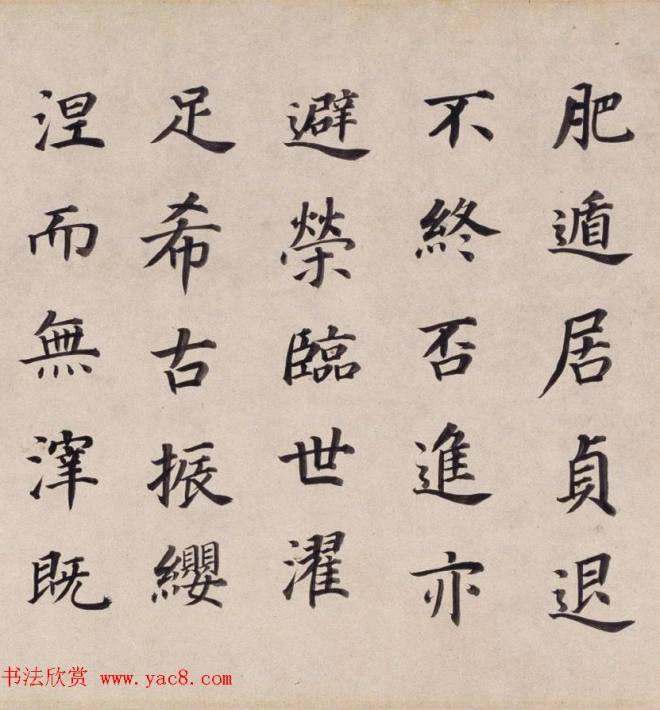 肥遁居貞退
不終否進亦
避榮臨世濯
足希古振纓
涅而無滓既
书法欣赏 www.yac8.com